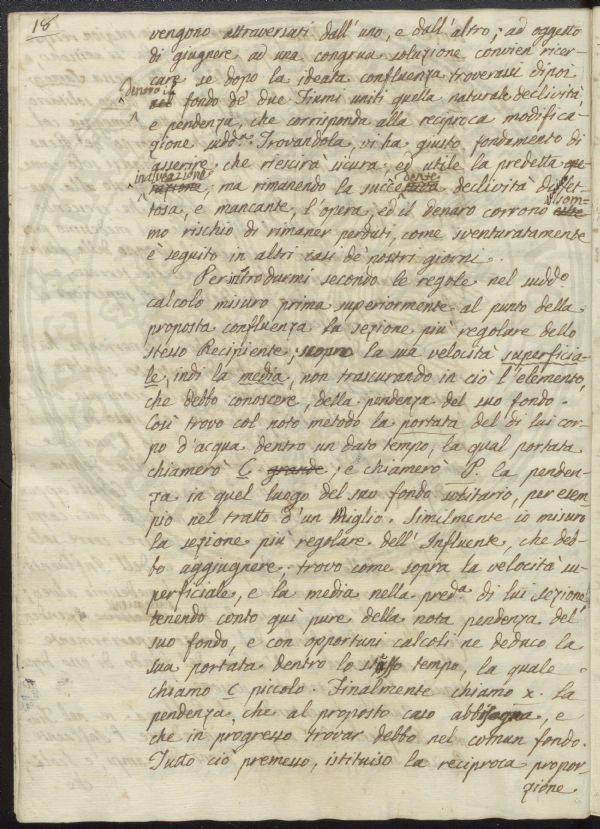 18
vengono attraversati dall' uno, e dall' altro; ad oggetto
di giugnere ad una congrua soluzione convien ricer-
care se dopo la ideata confluenza troverassi dipoi
dentro il
nel fondo de' due Fiumi uniti quella naturale declività,
e pendenza, che corrisponda alla reciproca modifica-
zione sudd.a Trovandola, vi ha giusto fondamento di
asserire che riescirà sicura ed utile la predetta ope-
inalveazione
razione; ma rimanendo la succedente declività difet-
tosa, e mancante, l'opera, ed il denaro corrono som-
mo rischio di rimaner perduti, come sventuratamente
è seguito in altri casi de' nostri giorni.
Per introdurmi secondo le regole nel suddo
calcolo misuro prima superiormente al punto della
proposta confluenza la sezione più regolare dello
stesso Recipiente, scopro la sua velocità superficia-
le, indi la media, non trascurando in ciò l'elemento,
che debbo conoscere, della pendenza del suo fondo.
Così trovo col noto metodo la portata del di lui cor-
po d'acqua dentro un dato tempo, la qual portata
chiamerò C grande, e chiamerò P la penden-
za in quel luogo del suo fondo unitario, per esem-
pio nel tratto d'un Miglio. Similmente io misuro
la sezione più regolare dell' Influente, che deb-
bo aggiugnere, trovo come sopra la velocità su-
perficiale, e la media nella pred.a di lui sezione
tenendo conto quì pure della nota pendenza del
suo fondo, e con opportuni calcoli ne deduco la
sua portata dentro lo stesso tempo, la quale
chiamo C piccolo. Finalmente chiamo x. la
pendenza, che al proposto caso abbisogna, e
che in progresso trovar debbo nel comun fondo.
Tutto ciò premesso, istituiso la reciproca propor-
zione